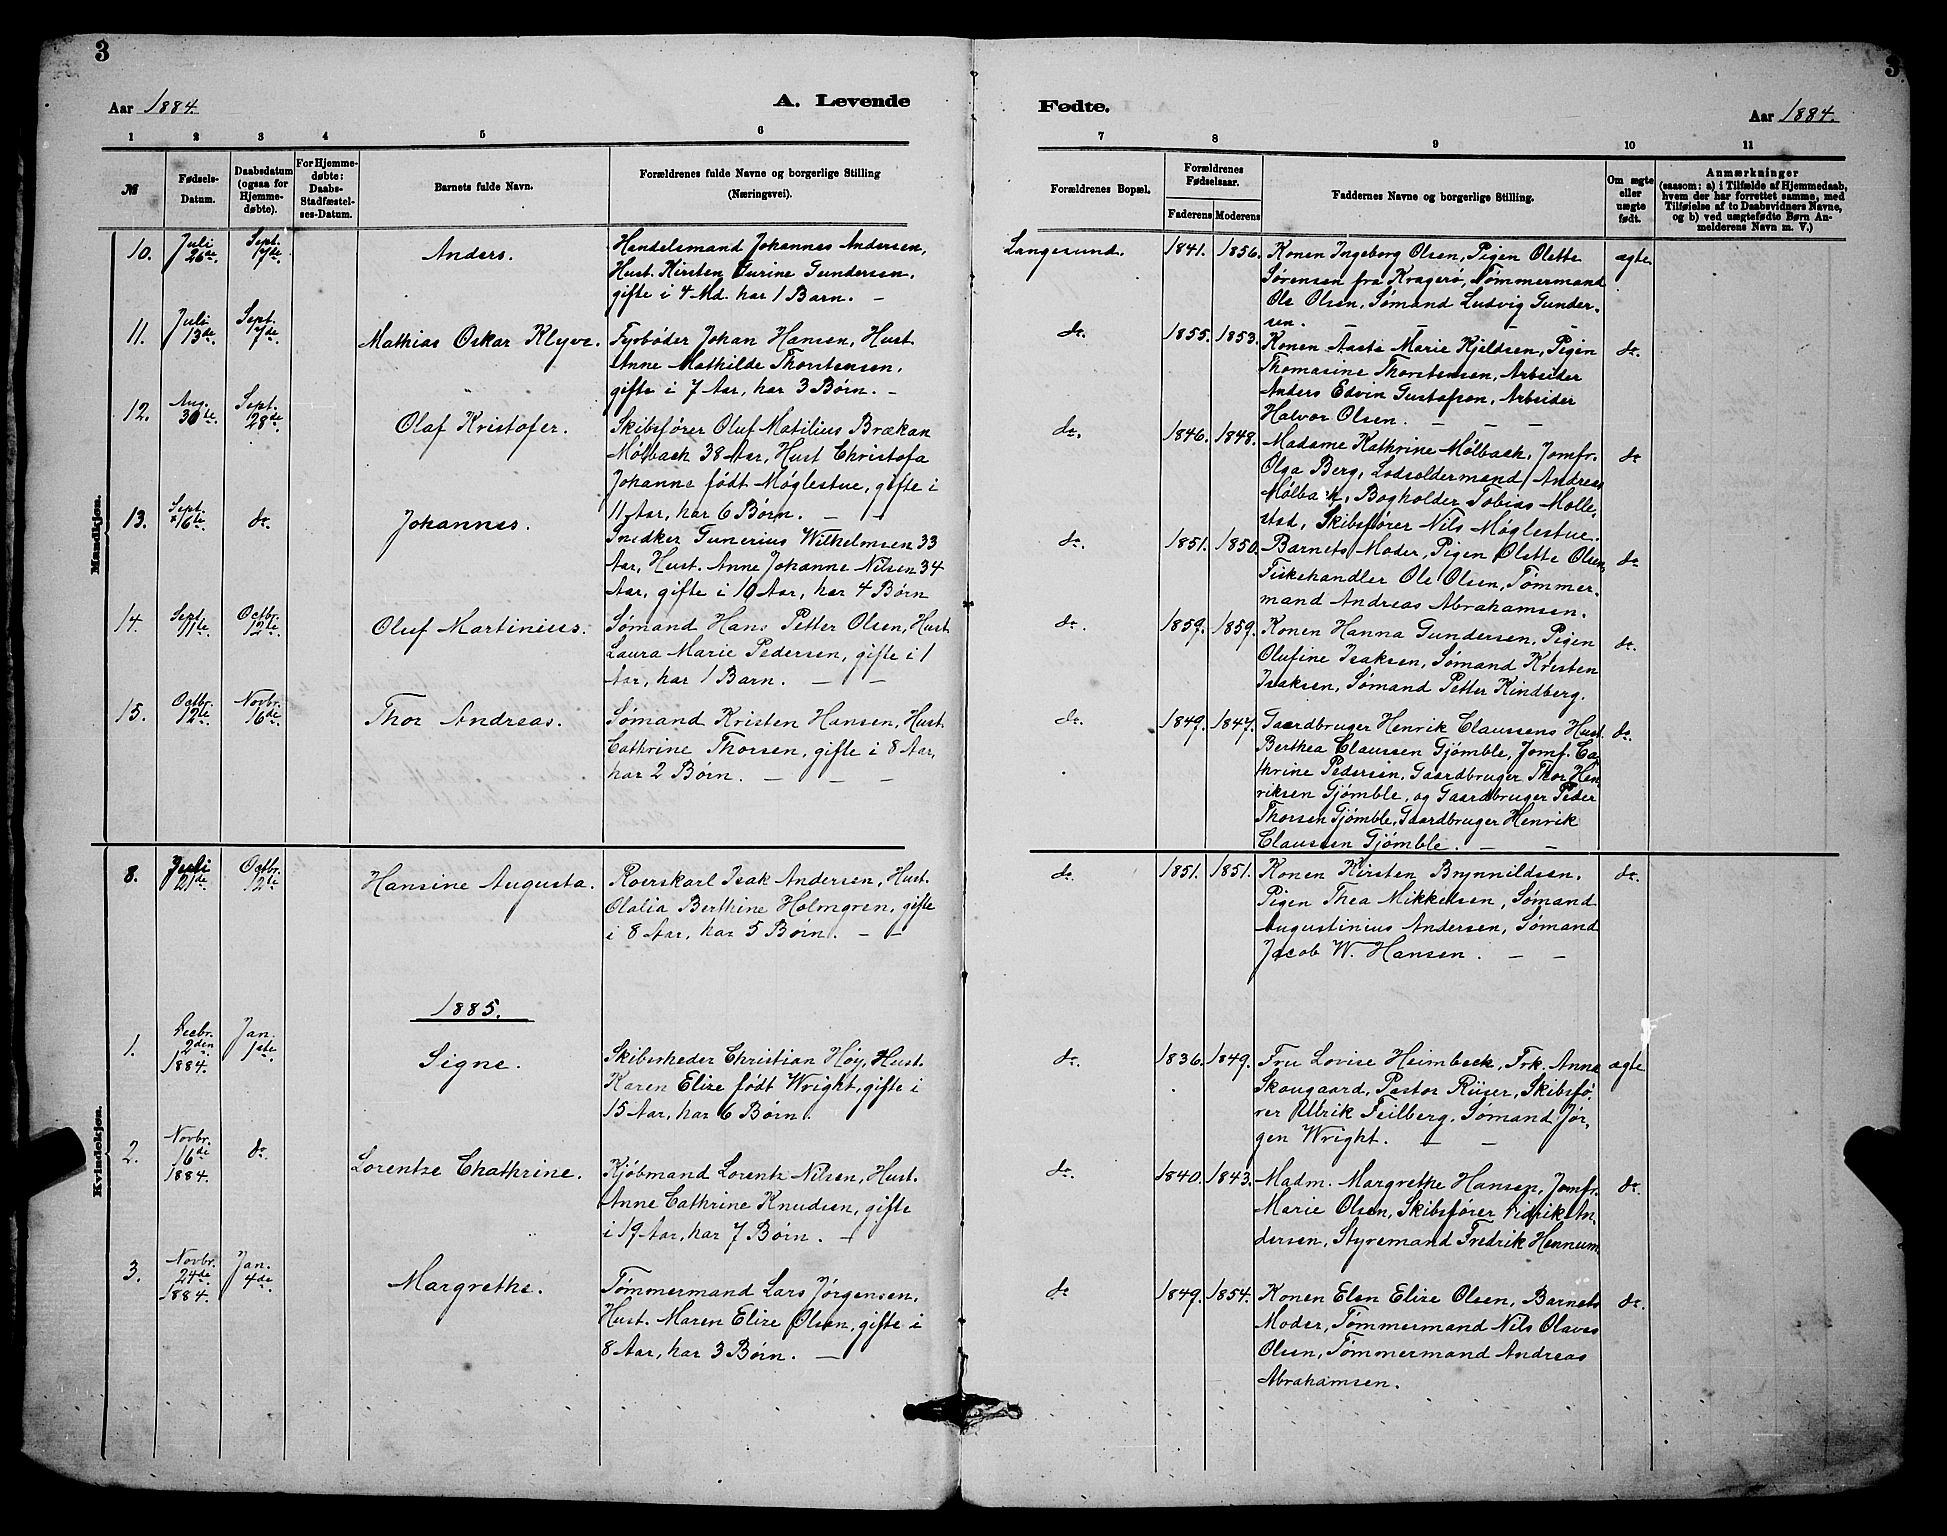 3
3
Aar 1884.
A. Levende
Fødte.
Aar 1884.
1 2 3 4 5 6
7 8 9 10 11
№
Fødsels-
Datum.
Daabsdatum
(ogsaa for
Hjemme-
døbte).
For Hjemme-
døbte:
Daabs-
Stadfæstel-
ses-Datum.
Barnets fulde Navn.
Forældrenes fulde Navne og borgerlige Stilling
(Næringsvei).
Forældrenes Bopæl.
Forældrenes
Fødselsaar.
Faderens Moderens
Faddernes Navne og borgerlige Stilling.
Om ægte
eller
uægte
født.
Anmærkninger
(saasom: a) i Tilfælde af Hjemmedaab,
hvem der har forrettet samme, med
Tilføielse af to Daabsvidners Navne,
og b) ved uægtefødte Børn An-
melderens Navn m. V.)
Mandkjøn.
10.
Juli
26de
Sept.
7de
Anders.
Handelsmand Johannes Andersen,
Hust. Kirsten Gurine Gundersen,
gifte i 4 Md. har 1 Barn. —
Langesund.
1841. 1856.
Konen Ingeborg Olsen, Pigen Olette
Sørensen fra Kragerø, Tømmermand
Ole Olsen, Sømand Ludvig Gunder-
sen. — — —
ægte.
11.
Juli
13de
Sept.
7de
Mathias Oskar Klyve.
Fyrbøder Johan Hansen, Hust.
Anne Mathilde Thorstensen,
gifte i 7 Aar, har 3 Børn. —
do.
1855. 1853.
Konen Aaste Marie Kjeldsen, Pigen
Thomasine Thorstensen, Arbeider
Anders Edvin Gustafson, Arbeider
Halvor Olsen. — — —
do.
12.
Aug.
30te
Sept.
28de
Olaf Kristofer.
Skibsfører Oluf Matilius Brækan
Mølbach 38 Aar, Hust Christofa
Johanne født Møglestue, gifte i
11 Aar, har 6 Børn. — —
do.
1846. 1848.
Madame Kathrine Mølbach, Jomfr.
Olga Berg, Lodsoldermand Andreas
Mølback, Bogholder Tobias Molle-
stad, Skibsfører Nils Møglestue.
do
13.
Sept.
16te
do.
Johannes.
Snedker Gunerius Wilhelmsen 33
Aar, Hust. Anne Johanne Nilsen 34
Aar, gifte i 10 Aar, har 4 Børn
do.
1851. 1850.
Barnets Moder, Pigen Olette Olsen,
Fiskehandler Ole Olsen, Tømmer-
mand Andreas Abrahamsen.
do.
14.
Sept.
11te
Octbr.
12te
Oluf Martinius.
Sømand Hans Petter Olsen, Hust.
Laura Marie Pedersen, gifte i 1
Aar, har 1 Barn. — —
do.
1859. 1859.
Konen Hanna Gundersen, Pigen
Olufine Isaksen, Sømand Kristen
Isaksen, Sømand Petter Kindberg.
do.
15.
Octbr.
12te
Novbr.
16de
Thor Andreas.
Sømand Kristen Hansen, Hust.
Cathrine Thorsen, gifte i 8 Aar,
har 2 Børn. — — —
do.
1849. 1847.
Gaardbruger Henrik Claussens Hust.
Berthea Claussen Gjømble, Jomf. Ca-
thrine Pedersen, Gaardbruger Thor Hen-
riksen Gjømble, og Gaardbruger Peder
Thorsen Gjømble, Gaardbruger Henrik
Claussen Gjømble. — —
do.
Kvindekjøn.
8.
Juli
21de
Octbr.
12te
Hansine Augusta.
Roerskarl Isak Andersen, Hust.
Olalia Berthine Holmgren, gifte
i 8 Aar, har 5 Børn. — —
do.
1851. 1851.
Konen Kirsten Brynnildsen,
Pigen Thea Mikkelsen, Sømand
Augustinius Andersen, Sømand
Jacob W. Hansen. — —
do.
1885.
1.
Decbr.
2den
1884.
Jan.
1ste
Signe.
Skibsrheder Christian Høy, Hust.
Karen Elize født Wright, gifte i
15 Aar, har 6 Børn.
do.
1836. 1849.
Fru Lovise Heimbeck, Frk. Anna
Skougaard, Pastor Riiser, Skibsfø-
rer Ulrik Feilberg, Sømand Jør-
gen Wright. — —
ægte
2.
Novbr.
16de
1884.
do.
Lorentze Chathrine.
Kjøbmand Lorentz Nilsen, Hust.
Anne Cathrine Knudsen, gifte
i 19 Aar, har 7 Børn. —
do.
1840. 1843.
Madm. Margrethe Hansen, Jomfr.
Marie Olsen, Skibsfører Didrik An-
dersen, Styremand Fredrik Hennum.
do.
3.
Novbr.
24de
1884.
Jan.
4de
Margrethe.
Tømmermand Lars Jørgensen,
Hust. Maren Elize Olsen, gifte i
8 Aar, har 3 Børn. —
do
1849. 1854.
Konen Elen Elize Olsen, Barnets
Moder, Tømmermand Nils Olaves
Olsen, Tømmermand Andreas
Abrahamsen.
do.